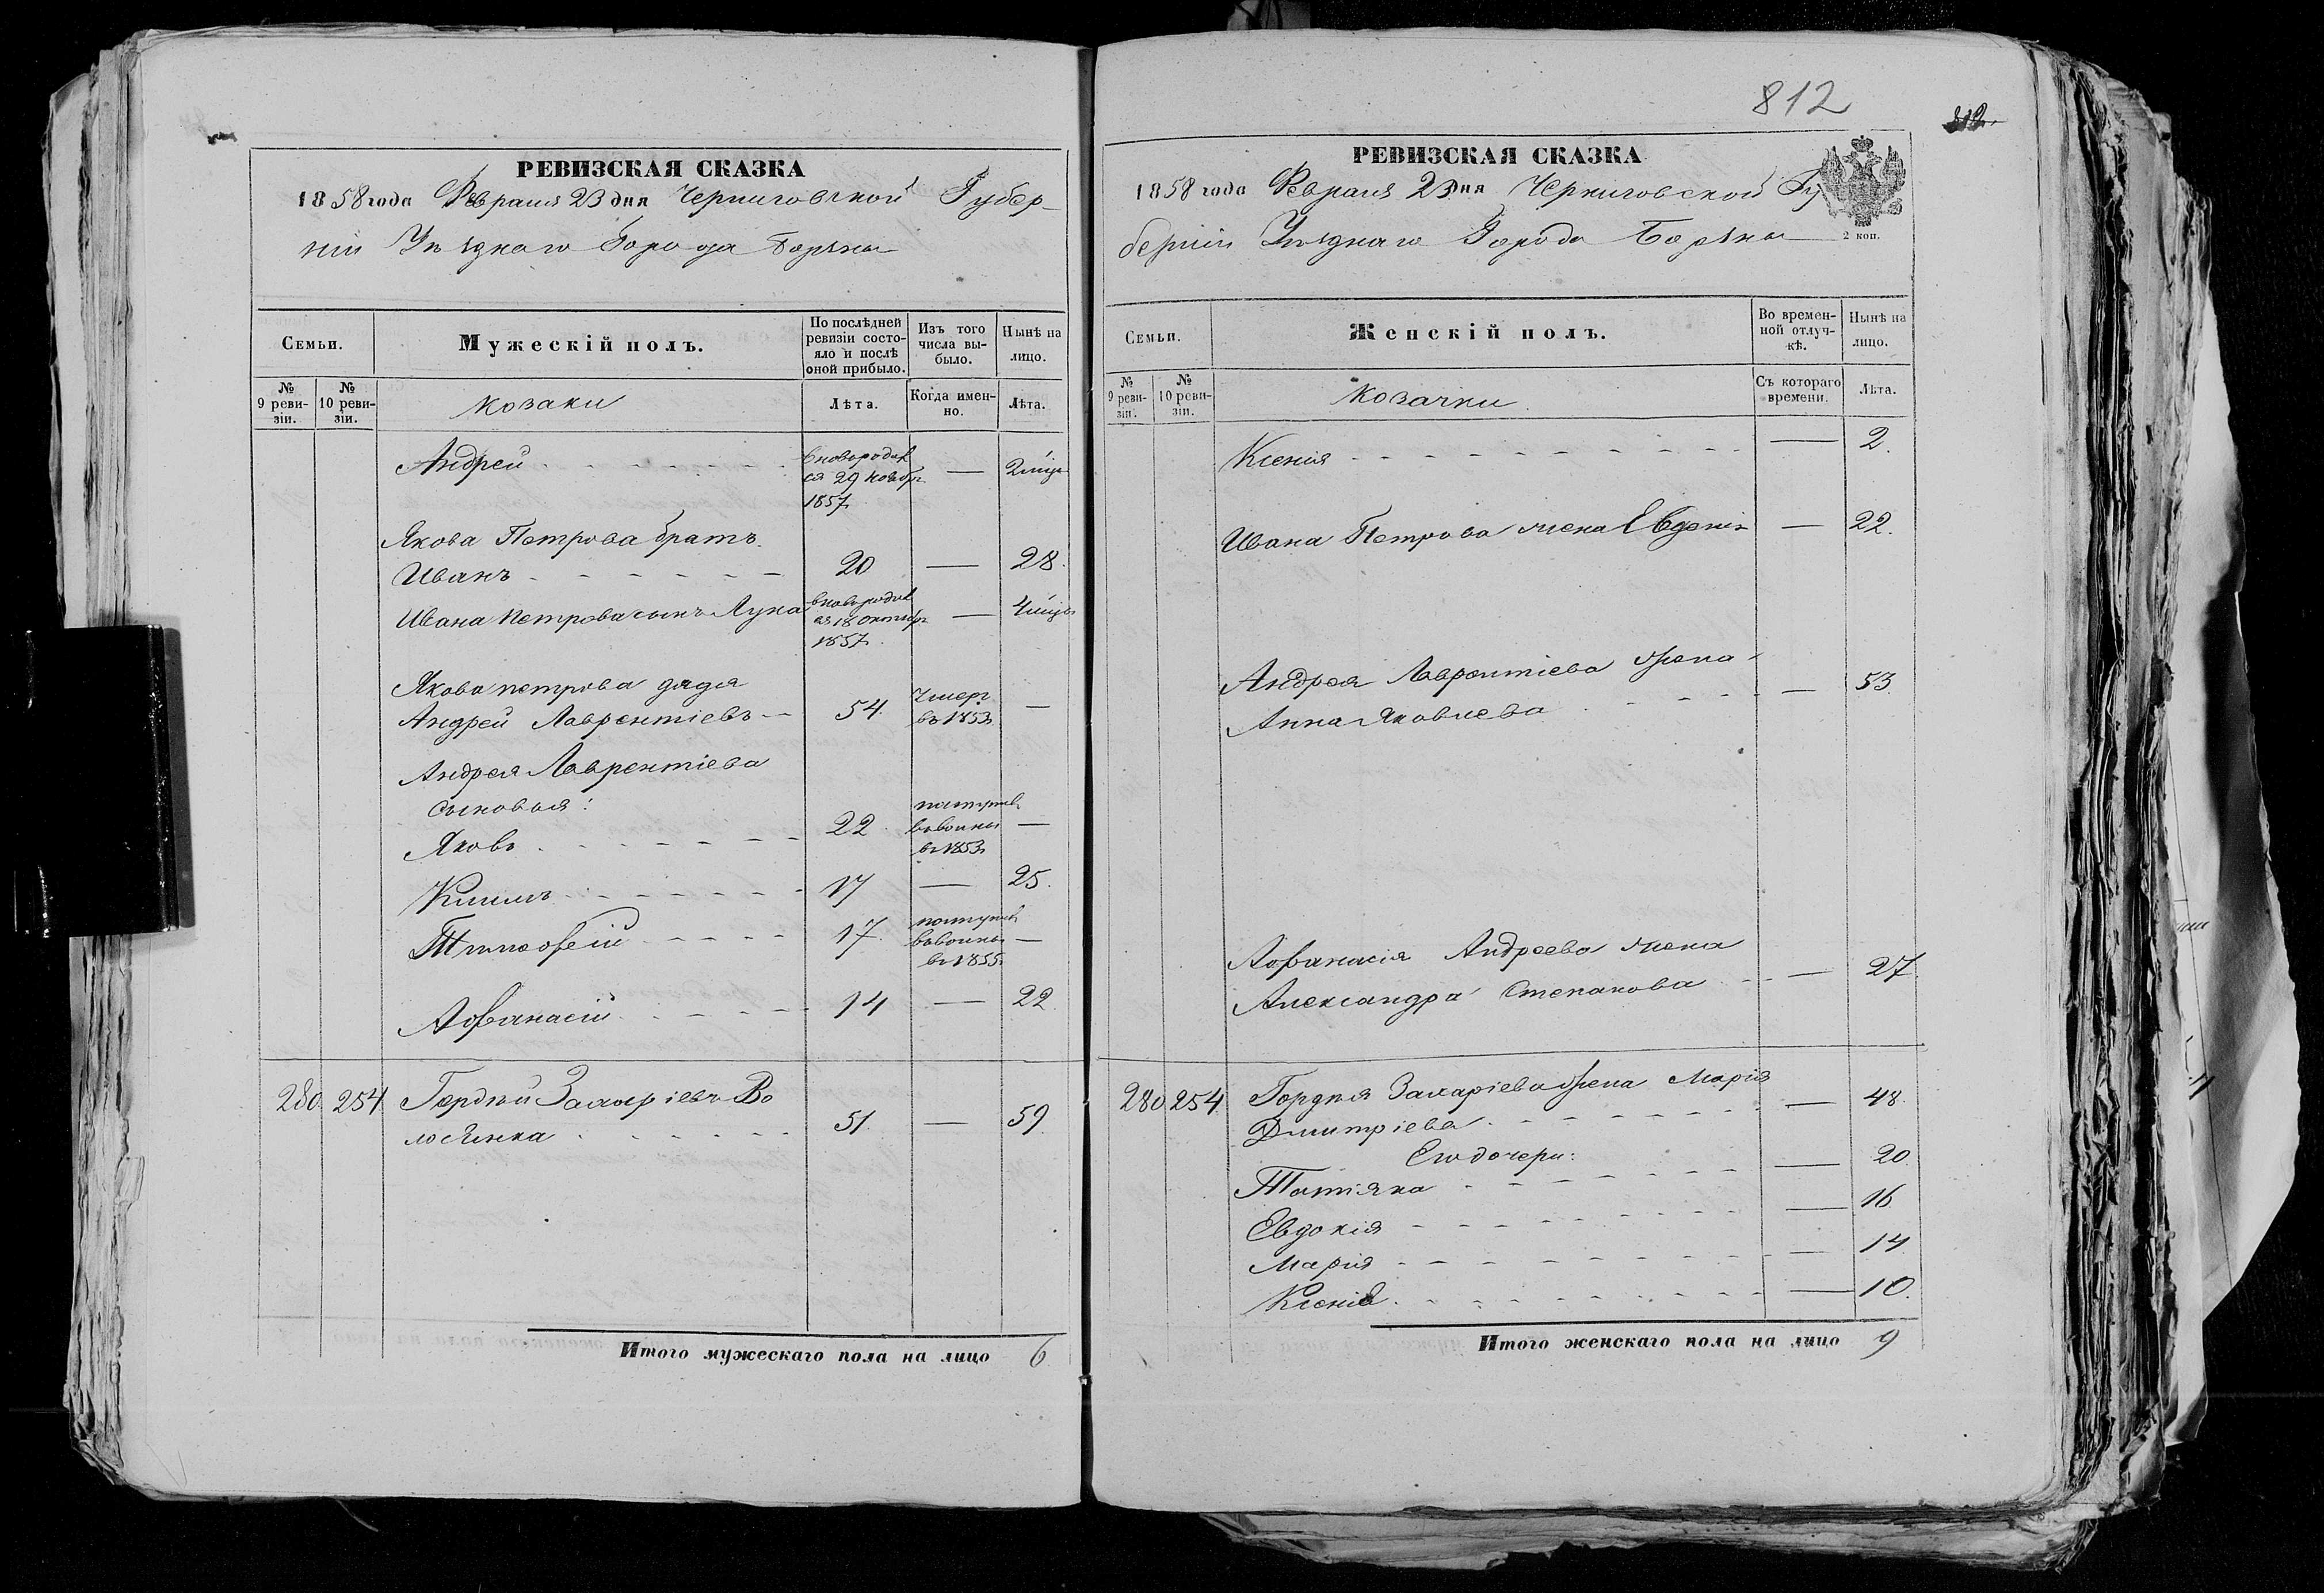 812
РЕВИЗСКАЯ СКАЗКА
1858 года Февраля 23 дня Черниговской Губер-
ніи Уѣзднаго Города Борзны
Семьи.
Мужескій полъ.
По послѣдней ревизіи состояло и послѣ оной прибыло.
Изъ того числа выбыло.
Нынѣ на лицо.
№ 9 ревизіи.
№ 10 ревизіи.
Козаки
Лѣта.
Когда именно.
Лѣта.
Андрей новородив
ся 29 ноябр — 2 мѣц
1857
Якова Петрова братъ
Иванъ 20 — 28.
Ивана Петрова сынъ Лука новородив
ся 18 октябр — 4 мѣц
1857
Якова Петрова дядя
Андрей Лаврентіевъ 54. Умер въ 1853 —
Андрея Лаврентіева
сыновья:
Яковъ 22 поступ в воины в 1853 —
Климъ 17 — 25.
Тимофей 17. поступ в воины в 1855 —
Афанасій 14 — 22
280 254 Гордѣй Захаріевъ Во
лосянка 51. — 59
Итого мужескаго пола на лицо 6
РЕВИЗСКАЯ СКАЗКА
1858 года Февраля 23 дня Черниговской Гу
берніи Уѣзднаго Города Борзны
2 коп.
Семьи.
Женскій полъ.
Во временной отлучкѣ.
Нынѣ на лицо.
№ 9 ревизіи.
№ 10 ревизіи.
Козачки
Съ котораго времени.
Лѣта.
Ксенія — 2.
Ивана Петрова жена Евдокія — 22.
Андрея Лаврентіева жена
Анна Яковлева — 53
Афанасія Андреева жена
Александра Степанова — 27
280 254 Гордѣя Захаріева жена Марія
Дмитріева — 48.
Его дочери:
Татіяна — 20
Евдокія — 16
Марія — 14
Ксенія — 10.
Итого женскаго пола на лицо 9